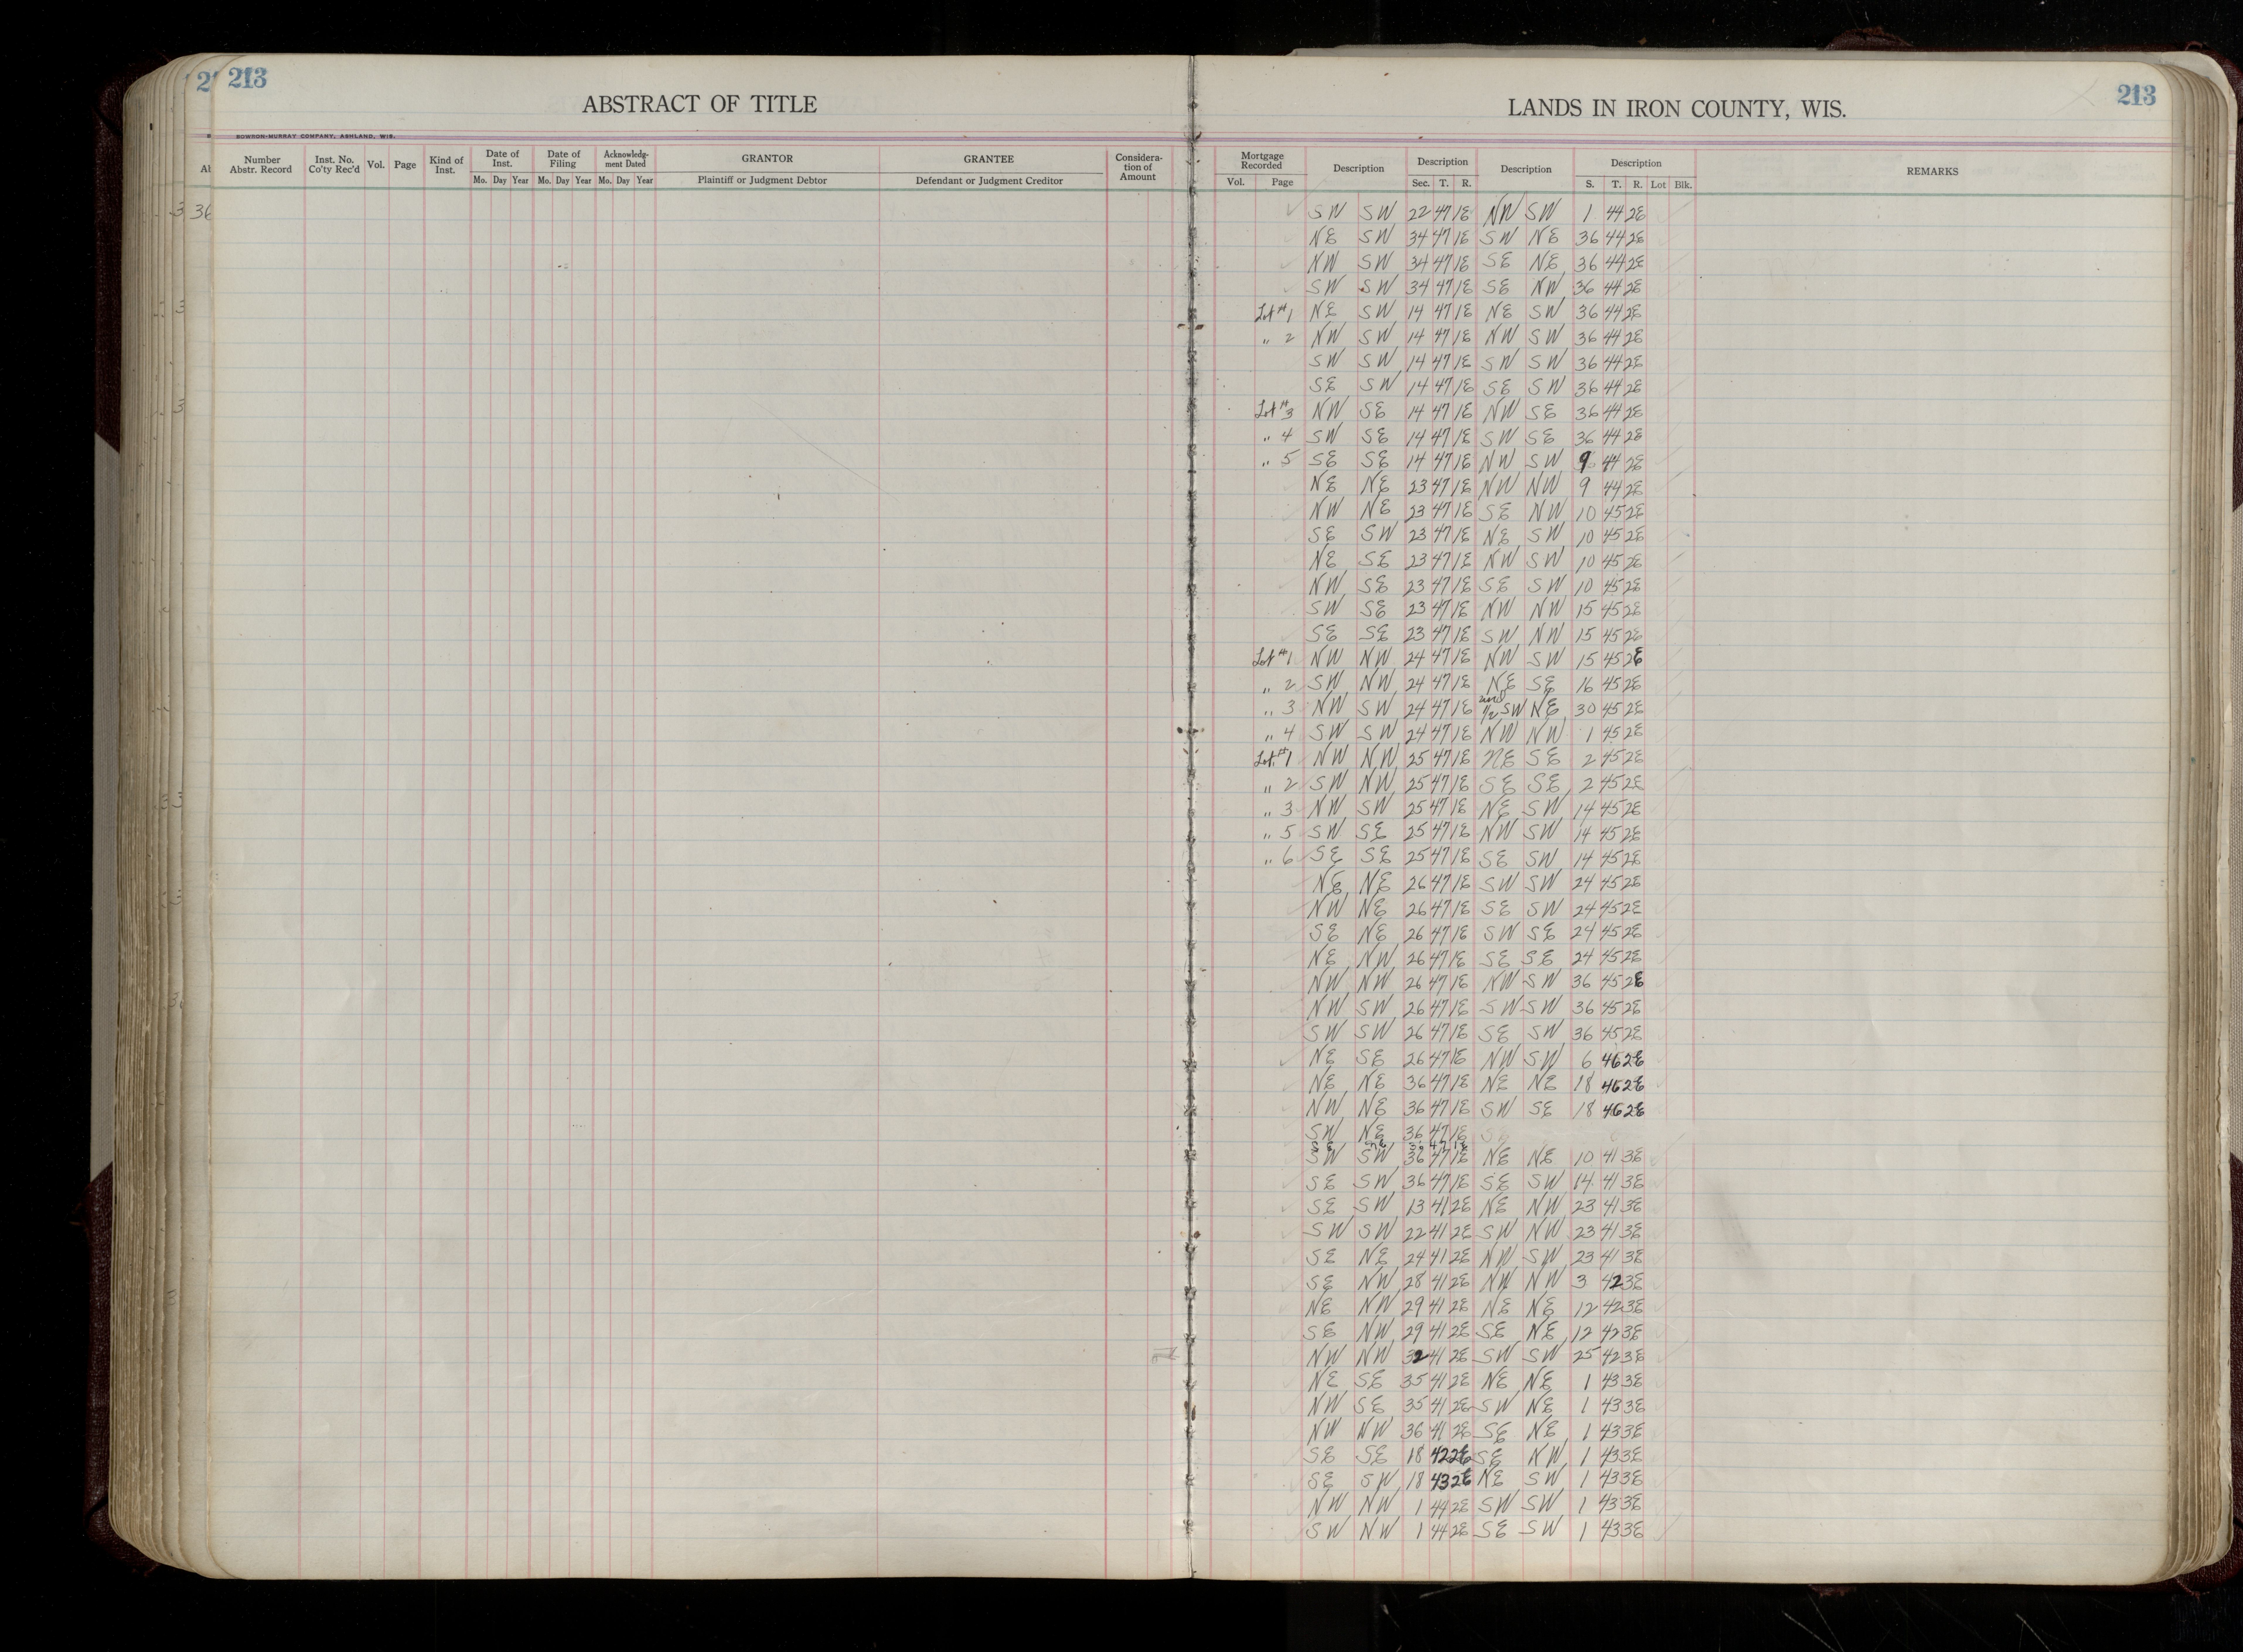 213
213
213
ABSTRACT OF TITLE
LANDS IN IRON COUNTY, WIS.
BOWRON-MURRAY COMPANY, ASHLAND, WIS.
Number Abstr. Record Inst. No. Co'ty Rec'd Vol. Page Kind of Inst. Date of Inst. Date of Filing Acknowledgment Dated GRANTOR GRANTEE Consideration of Amount Mortgage Recorded Description Description Description Description REMARKS
Mo. Day Year Mo. Day Year Mo. Day Year Plaintiff or Judgment Debtor Defendant or Judgment Creditor Vol. Page Sec. T. R. S. T. R. Lot Blk.
36 SW SW 22 47 1E NW SW 1 44 2E
NE SW 34 47 1E SW NE 36 44 2E
NW SW 34 47 1E SE NE 36 44 2E
SW SW 34 47 1E SE NW 36 44 2E
Lot 1 NE SW 14 47 1E NE SW 36 44 2E
" 2 NW SW 14 47 1E NW SW 36 44 2E
SW SW 14 47 1E SW SW 36 44 2E
SE SW 14 47 1E SE SW 36 44 2E
Lot 3 NW SE 14 47 1E NW SE 36 44 2E
" 4 SW SE 14 47 1E SW SE 36 44 2E
" 5 SE SE 14 47 1E NW SW 9 44 2E
NE NE 23 47 1E NW NW 9 44 2E
NW NE 23 47 1E SE NW 10 45 2E
SE SW 23 47 1E NE SW 10 45 2E
NE SE 23 47 1E NW SW 10 45 2E
NW SE 23 47 1E SE SW 10 45 2E
SW SE 23 47 1E NW NW 15 45 2E
SE SE 23 47 1E SW NW 15 45 2E
Lot 1 NW NW 24 47 1E NW SW 15 45 2E
" 2 SW NW 24 47 1E NE SE 16 45 2E
" 3 NW SW 24 47 1E und 1/2 SW NE 30 45 2E
" 4 SW SW 24 47 1E NW NW 1 45 2E
Lot 1 NW NW 25 47 1E NE SE 2 45 2E
" 2 SW NW 25 47 1E SE SE 2 45 2E
" 3 NW SW 25 47 1E NE SW 14 45 2E
" 5 SW SE 25 47 1E NW SW 14 45 2E
" 6 SE SE 25 47 1E SE SW 14 45 2E
NE NE 26 47 1E SW SW 24 45 2E
NW NE 26 47 1E SE SW 24 45 2E
SE NE 26 47 1E SW SE 24 45 2E
NE NW 26 47 1E SE SE 24 45 2E
NW NW 26 47 1E NW SW 36 45 2E
NW SW 26 47 1E SW SW 36 45 2E
SW SW 26 47 1E SE SW 36 45 2E
NE SE 26 47 1E NW SW 6 46 2E
NE NE 36 47 1E NE NE 18 46 2E
NW NE 36 47 1E SW SE 18 46 2E
SW NE 36 47 1E
SE NE 36 47 1E
SW SW 36 47 1E NE NE 10 41 3E
SE SW 36 47 1E SE SW 14 41 3E
SE SW 13 41 2E NE NW 23 41 3E
SW SW 22 41 2E SW NW 23 41 3E
SE NE 24 41 2E NW SW 23 41 3E
SE NW 28 41 2E NW NW 3 42 3E
NE NW 29 41 2E NE NE 12 42 3E
SE NW 29 41 2E SE NE 12 42 3E
NW NW 32 41 2E SW SW 25 42 3E
NE SE 35 41 2E NE NE 1 43 3E
NW SE 35 41 2E SW NE 1 43 3E
NW NW 36 41 2E SE NE 1 43 3E
SE SE 18 42 2E SE NW 1 43 3E
SE SW 18 43 2E NE SW 1 43 3E
NW NW 1 44 2E SW SW 1 43 3E
SW NW 1 44 2E SE SW 1 43 3E